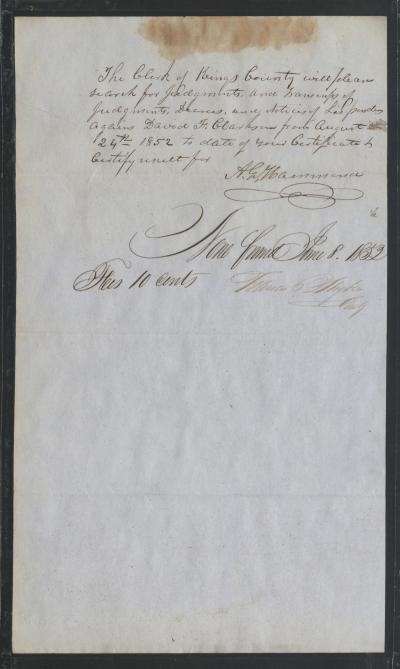 The Clerk of Kings County will please
search for judgments, and transcripts of
judgments, Decrees, and Notices of Lis pendens
against David F. Clarkson from August
24th 1852 to date of your Certificate &
Certify result for
A. G. Hammond
None found 8. 1852
Fees 10 cents